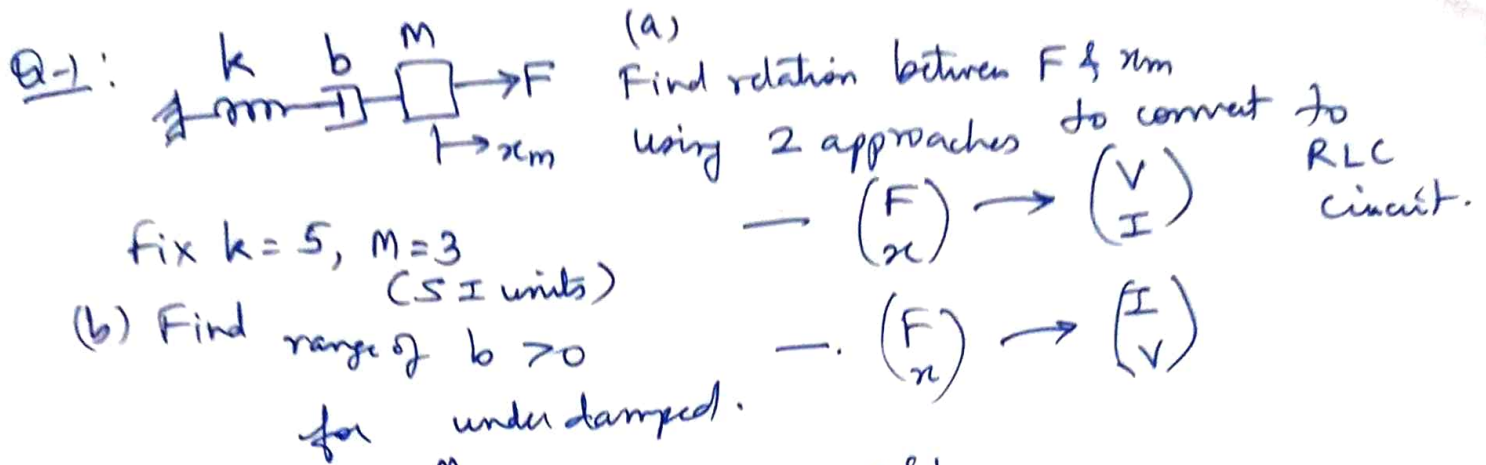 Q-1: k b M → F (a)
Find relation between F & xm
→ xm using 2 approaches to convert to
RLC
circuit.
— (F x) → (V I)
Fix k = 5, M = 3
(SI units)
(b) Find range of b > 0
—. (F x) → (I V)
for under damped.